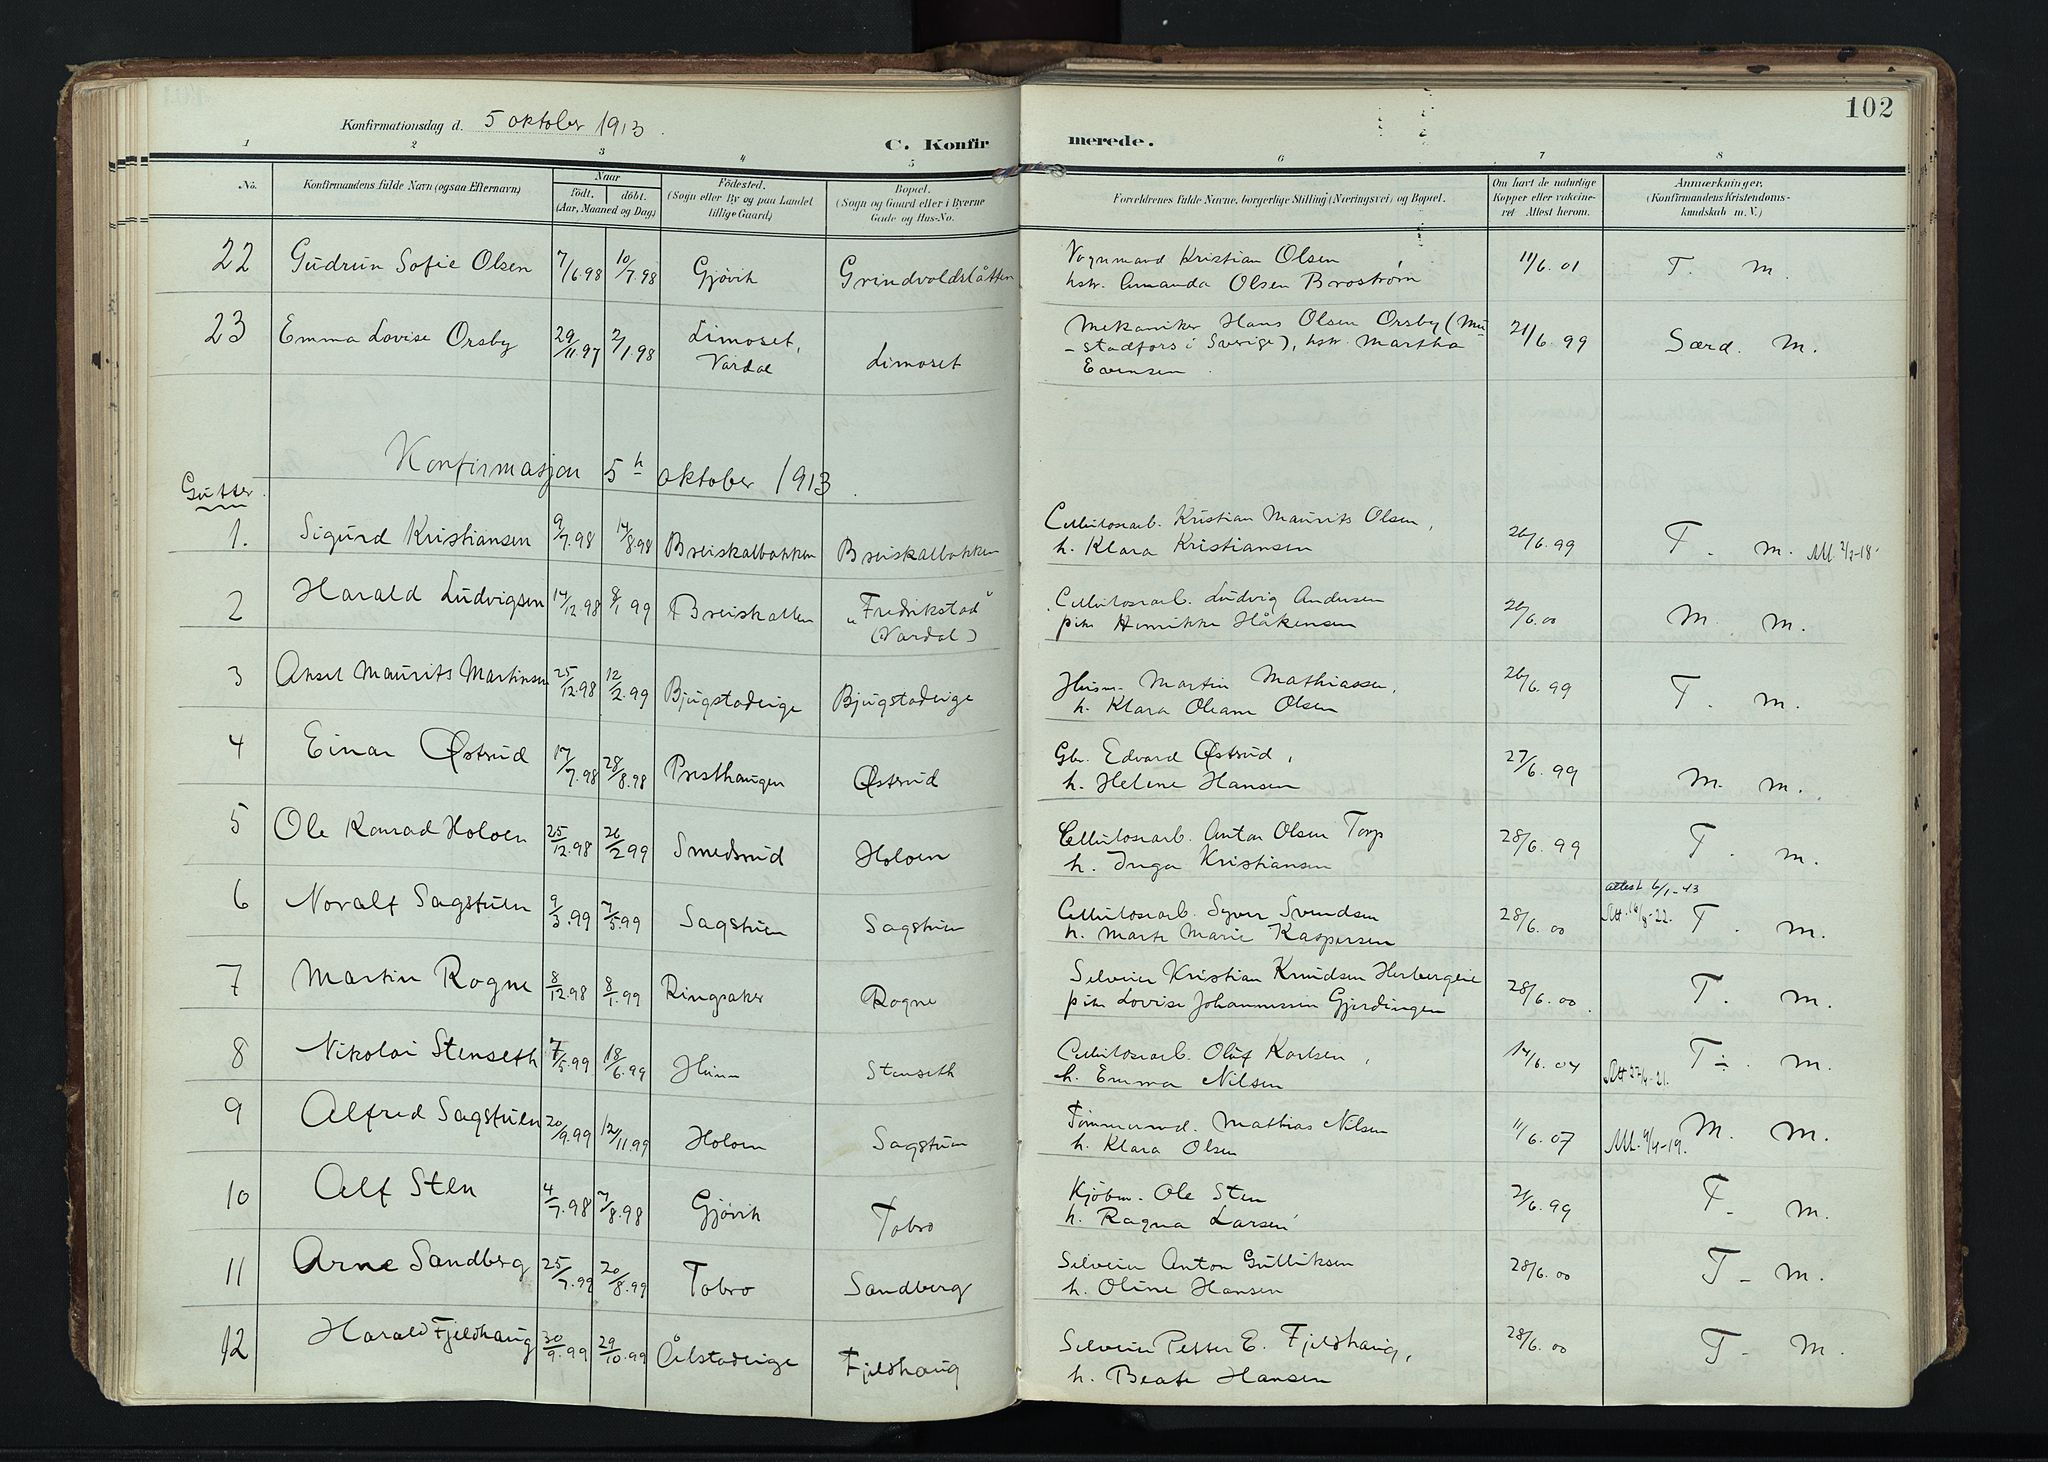 102
Konfirmationsdag d. 5 oktober 1913.
C. Konfirmerede.
1 2 3 4 5 6 7 8
No.
Konfirmandens fulde Navn (ogsaa Efternavn)
Naar
født. døbt.
(Aar, Maaned og Dag)
Fødested.
(Sogn eller By og paa Landet
tillige Gaard)
Bopæl.
(Sogn og Gaard eller i Byerne
Gade og Hus-No.
Forældrenes fulde Navne, borgerlige Stilling (Næringsvei) og Bopæl.
Om havt de naturlige
Kopper eller vakcine-
ret Attest herom.
Anmærkninger.
(Konfirmandens Kristendoms-
kundskab m. V.)
22 Gudrun Sofie Olsen 7/6.98 10/7.98 Gjøvik Grindvoldslåtten
Vognmand Kristian Olsen
hstr. Amanda Olsen Broström
11/6.01 T. m.
23 Emma Lovise Orsby 29/11.97 2/1.98 Limoset,
Vardal
Limoset
Mekaniker Hans Olsen Orsby (Mu-
-stadfors i Sverige), hstr. Martha
Evensen
21/6.99 Særd. M.
Konfirmasjon 5h oktober 1913.
Gutter.
1. Sigurd Kristiansen 9/7.98 14/8.98 Breiskalbakken Breiskalbakken
Cellulosearb. Kristian Maurits Olsen,
h. Klara Kristiansen
26/6.99 T. m. Att. 2/2-18.
2 Harald Ludvigsen 14/12.98 8/1.99 Breiskallen "Fredrikstad"
(Vardal)
Cellulosearb. Ludvig Andersen
pike Henrikke Håkensen
26/6.00 M. M.
3 Aksel Maurits Martinsen 25/12.98 12/2.99 Bjugstadeige Bjugstadeige
Husm. Martin Mathiassen,
h. Klara Oleane Olsen
26/6.99 T. M.
4 Einar Østrud 17/7.98 28/8.98 Presthaugen Østrud
Gbr. Edvard Østrud,
h. Helene Hansen
27/6.99 M. M.
5 Ole Konrad Holoen 25/12.98 26/2.99 Smedsrud Holoen
Cellulosearb. Anton Olsen Torp
h. Inga Kristiansen
28/6.99 T. m.
6 Noralf Sagstuen 9/3.99 7/5.99 Sagstuen Sagstuen
Cellulosearb. Syver Svendsen
h. Marte Marie Kaspersen
28/6.00
attest 6/1-43
Att. 16/8-22. T. m.
7 Martin Rogne 8/12.98 8/1.99 Ringsaker Rogne
Selveier Kristian Knudsen Herbergeie
pike Lovise Johannessen Gjerdingen
28/6.00 T. M.
8 Nikolai Stenseth 7/5.99 18/6.99 Hunn Stenseth
Cellulosearb. Oluf Karlsen,
h. Emma Nilsen
14/6.04 T ÷. M.
Att 27/4-21.
9 Alfred Sagstuen 20/9.99 12/11.99 Holoen Sagstuen
Tømmermd. Mathias Nilsen
h. Klara Olsen
11/6.07 M. M.
Att. 4/4-19.
10 Alf Sten 4/7.98 7/8.98 Gjøvik Tobro
Kjøbm. Ole Sten
h. Ragna Larsen
21/6.99 T. M.
11 Arne Sandberg 25/7.99 20/8.99 Tobro Sandberg
Selveier Anton Gulliksen
h. Oline Hansen
28/6.00 T - M.
12 Harald Fjeldhaug 30/9.99 29/10.99 Ålstadeige Fjeldhaug
Selveier Petter E. Fjeldhaug,
h. Beate Hansen
28/6.00 T - M.